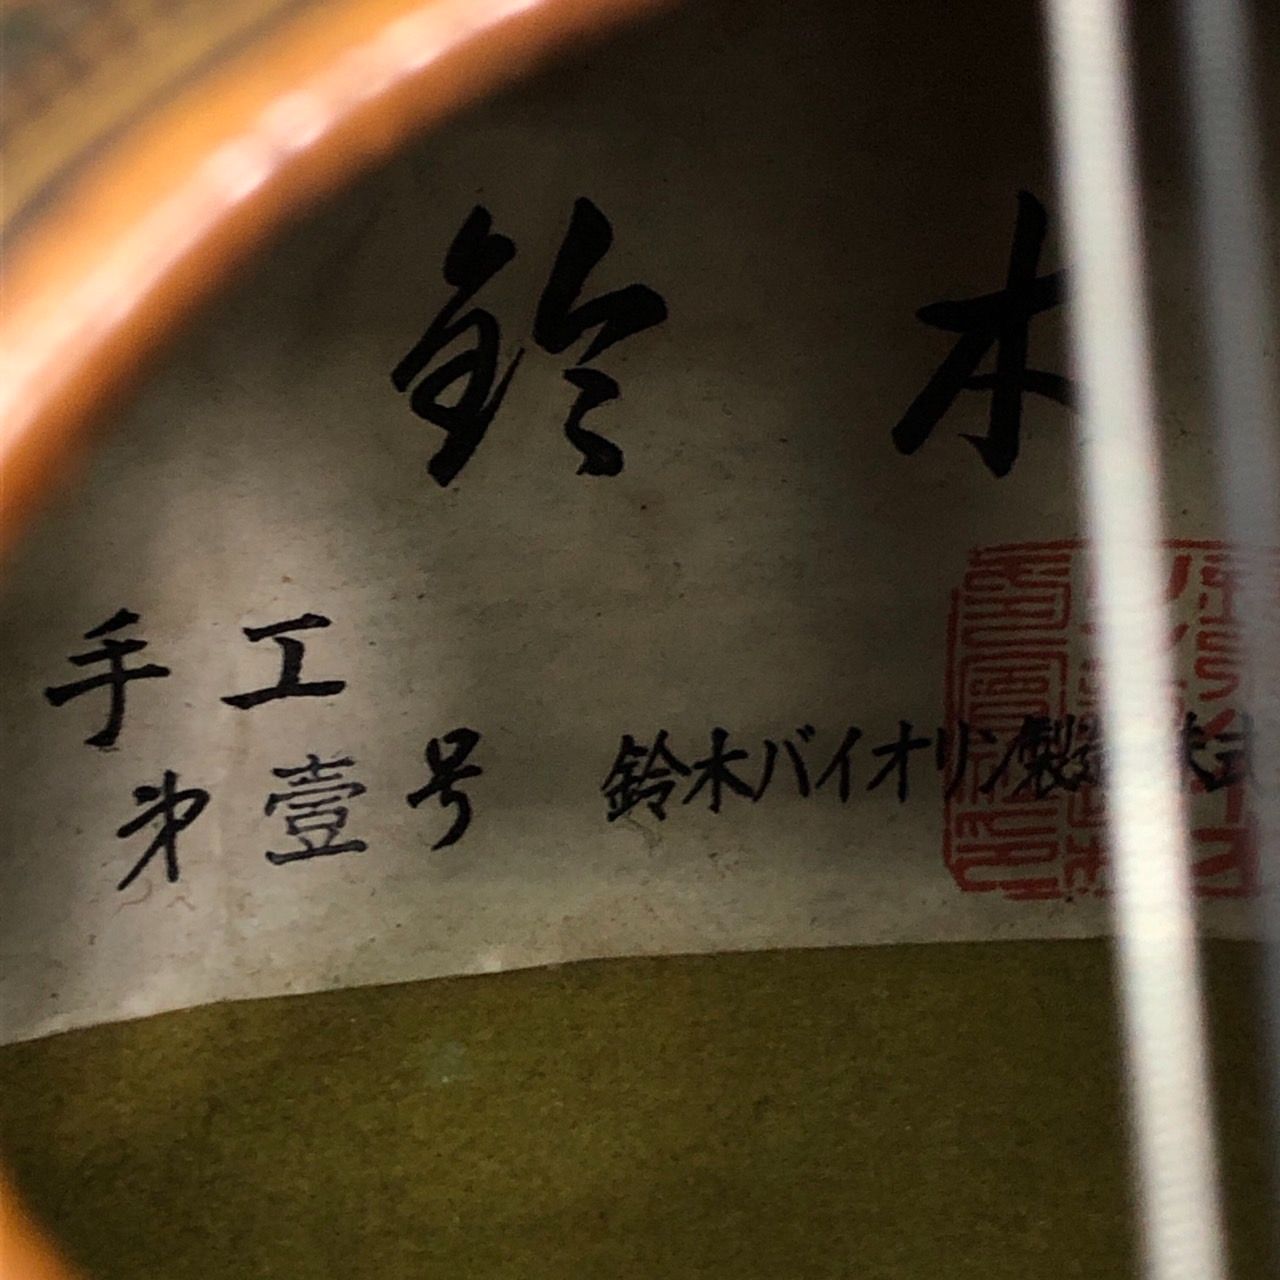 鈴木
手工
第壹号
鈴木バイオリン製造株式